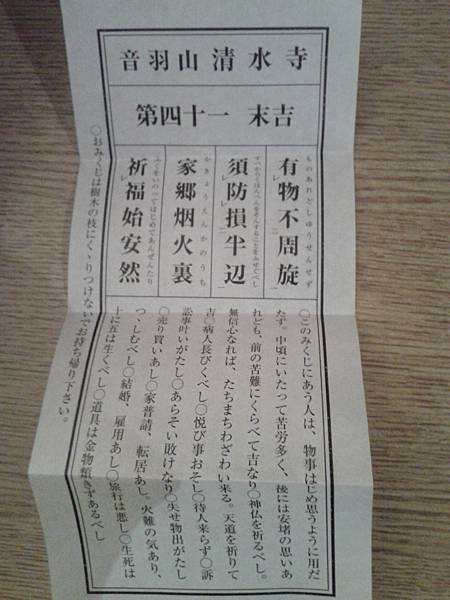 音羽山 清水寺
第四十一 末吉
ものあれどしゆうせんせず
有物不周旋
すべからくはんぺんをそんすることをふせぐべし
須防損半辺
かきょうえんかのうち
家郷烟火裏
ふくをいのってはじめてあんぜんたり
祈福始安然
〇このみくじにあう人は、物事はじめ思うように用だ
たず。中頃にいたって苦労多く、後には安堵の思いあ
れども、前の苦難にくらべて吉なり〇神仏を祈るべし。
無信心なれば、たちまちわざわい来る。天道を祈りて
吉〇病人長びくべし〇悦び事おそし〇待人来らず〇訴
訟事叶いがたし〇あらそい敗けなり〇失せ物出がたし
〇売り買いあし〇家普請、転居あし。火難の気あり、
つゝしむべし〇結婚、雇用あし〇旅行は悪し〇生死は
十に五は生くべし〇道具は金物類きずあるべし
〇おみくじは樹木の枝にくゝりつけないでお持ち帰り下さい。